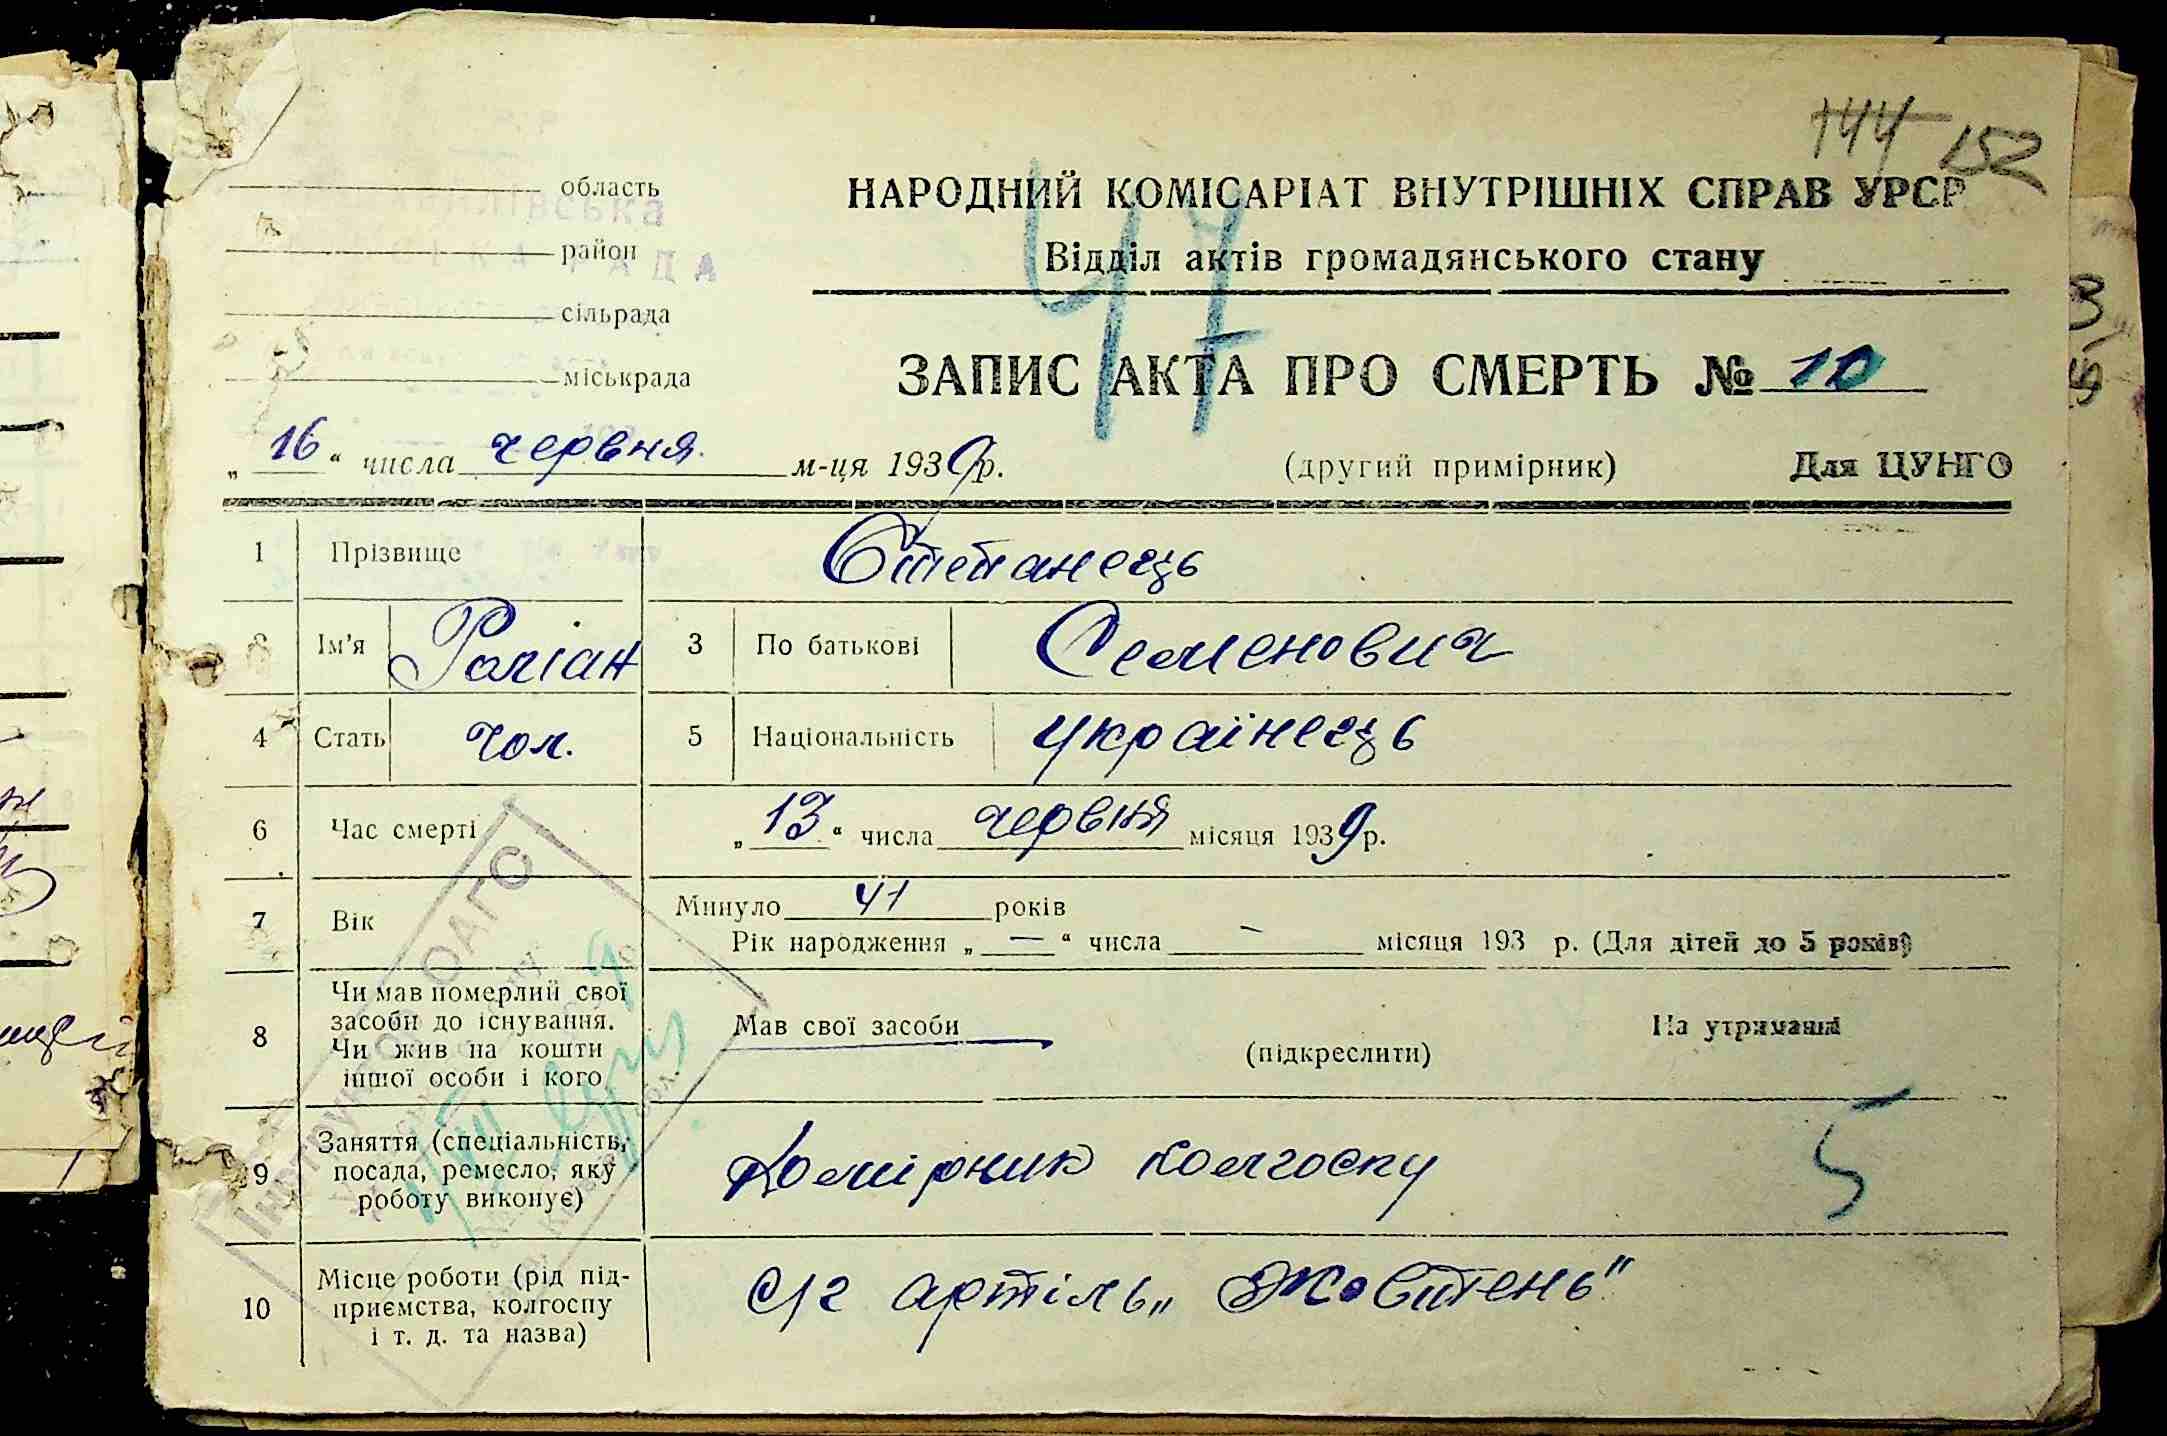 144 152
область
НАРОДНИЙ КОМІСАРІАТ ВНУТРІШНІХ СПРАВ УРСР
район
Відділ актів громадянського стану
сільрада
47
міськрада
ЗАПИС АКТА ПРО СМЕРТЬ № 10
„16“ числа червня м-ця 1939 р. (другий примірник) Для ЦУНГО
1 Прізвище Степанець
2 Ім'я Роліан 3 По батькові Семенович
4 Стать чол. 5 Національність українець
6 Час смерті „13“ числа червня місяця 1939 р.
7 Вік Минуло 41 років
Рік народження „—“ числа – місяця 193 р. (Для дітей до 5 років)
8 Чи мав померлий свої
засоби до існування.
Чи жив на кошти
іншої особи і кого
Мав свої засоби (підкреслити) На утриманні
9 Заняття (спеціальність,
посада, ремесло, яку
роботу виконує)
Комірник колгоспу 5
10 Місце роботи (рід під-
приємства, колгоспу
і т. д. та назва)
с/г артіль „Жовтень"